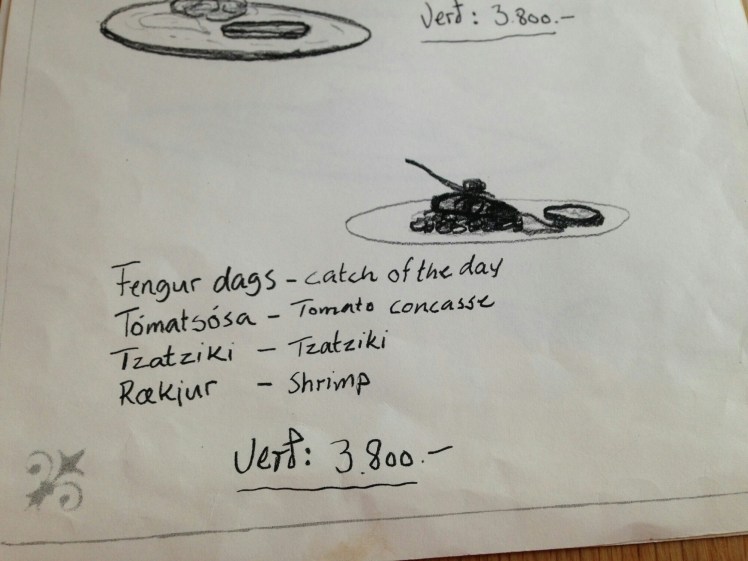 Verð: 3.800.-
Fengur dags - catch of the day
Tómatsósa - Tomato concasse
Tzatziki - Tzatziki
Rækjur - Shrimp
Verð: 3.800.-